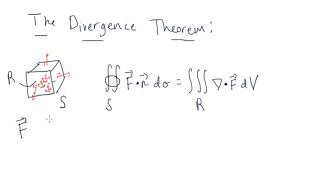 The Divergence Theorem:
R
S
∯ F⃗ • n⃗ dσ = ∭ ∇ • F⃗ dV
S R
F⃗